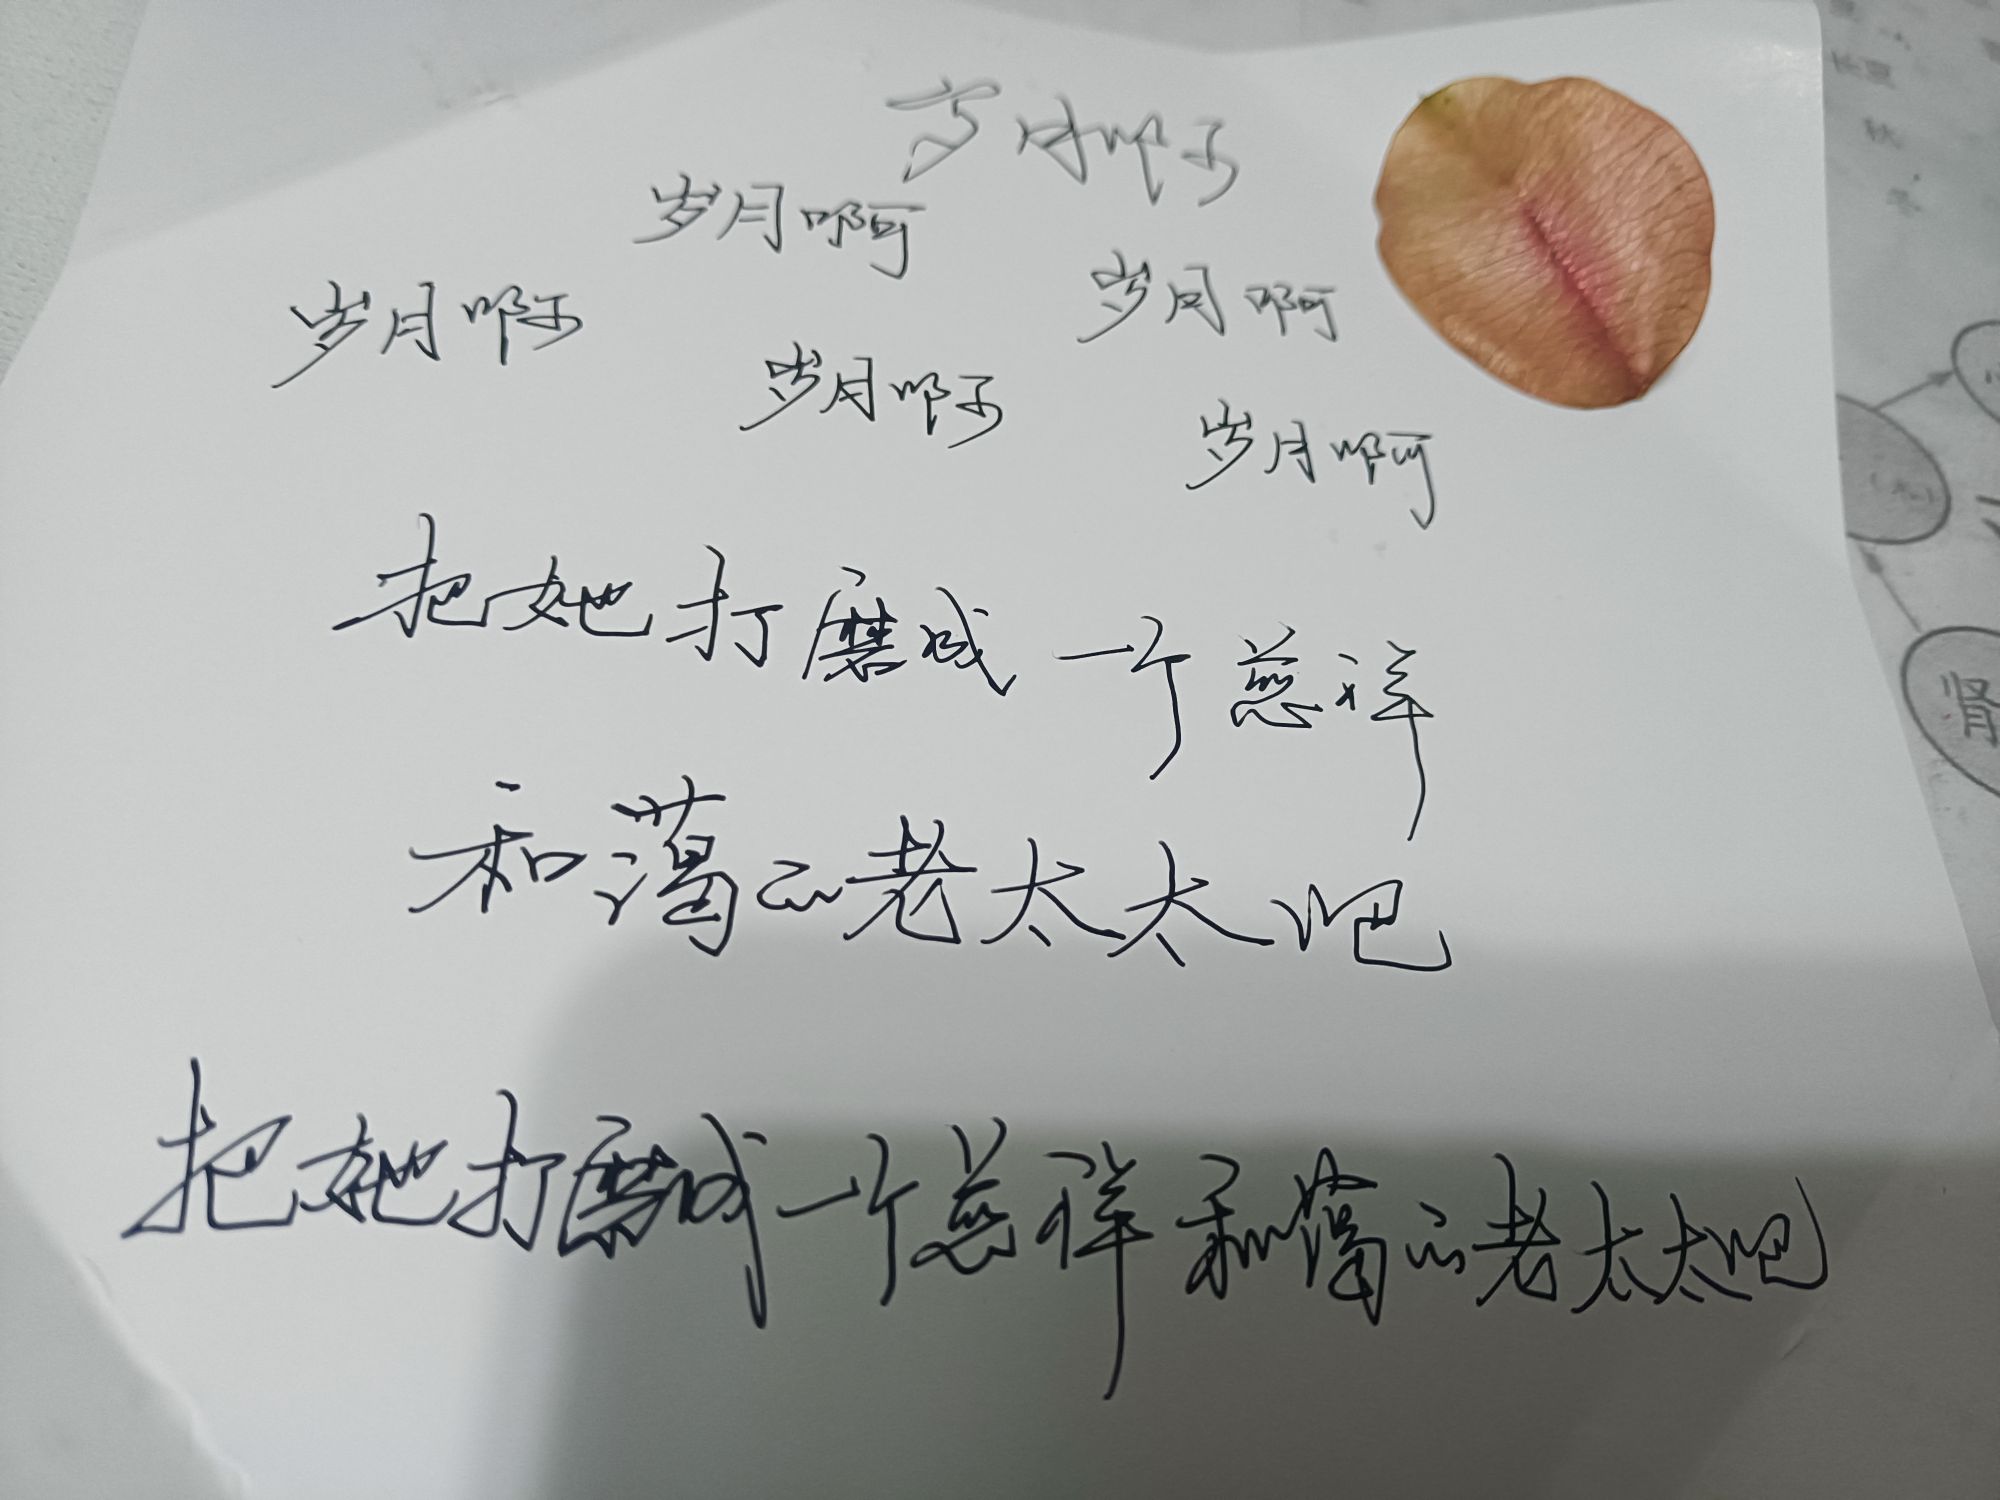 岁月啊
岁月啊
岁月啊
岁月啊
岁月啊
岁月啊
把她打磨成一个慈祥
和蔼的老太太吧
把她打磨成一个慈祥和蔼的老太太吧
肾